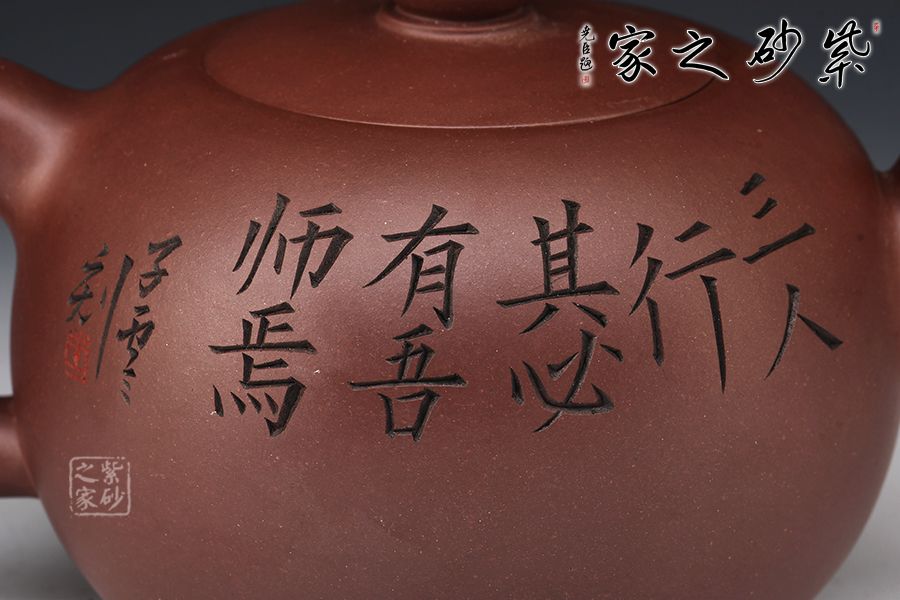 紫砂之家
尧臣题
三人
行
其必
有吾
师焉
子雲
刻
紫砂
之家